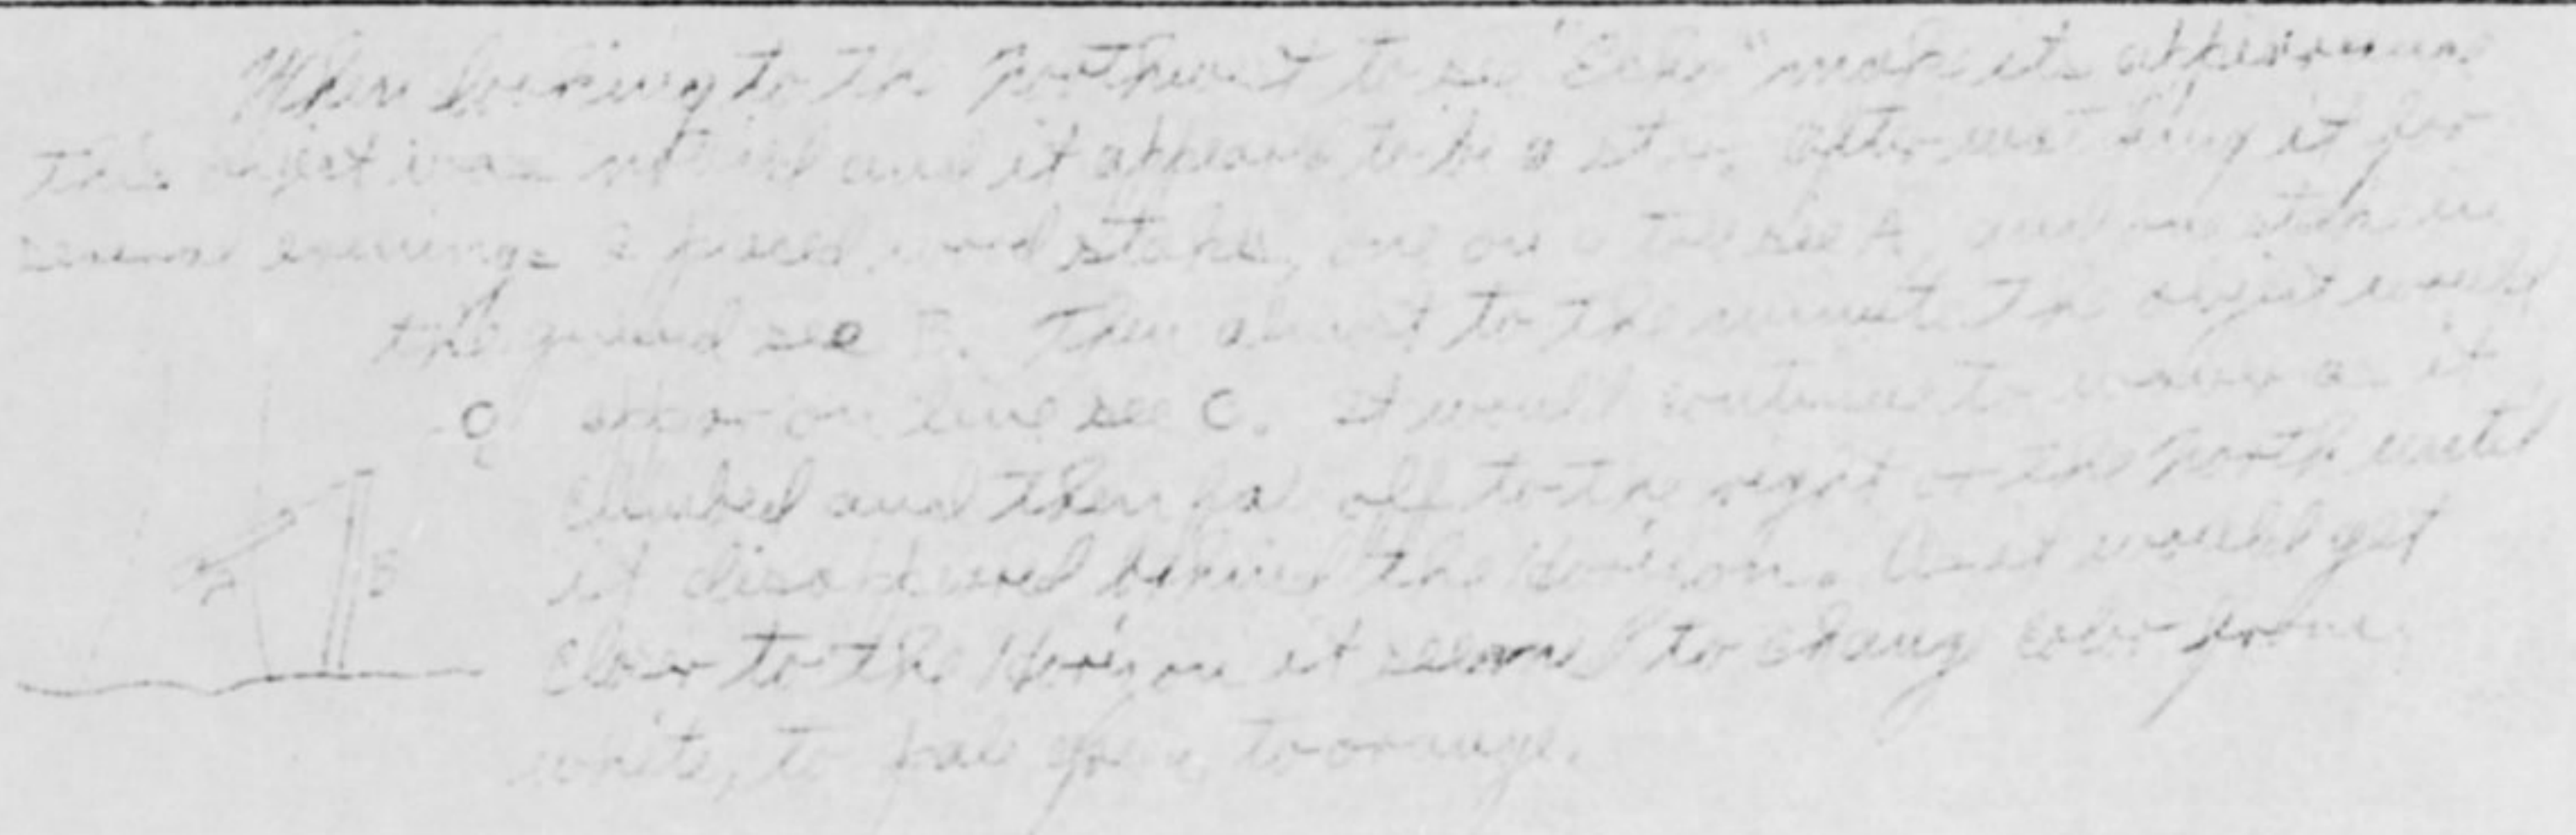 When looking to the Northwest to see "Echo" make its appearance
this object was noticed and it appeared to be a star. After watching it for
several evenings I placed wood stakes, one on a tree see A and one stake in
the ground see B. Then almost to the minute the object would
appear on line see C. It would continue to move as it
climbed and then fall off to the right or the North until
it disappeared behind the Horizon. As it would get
closer to the Horizon it seemed to change color from
white, to pale green, to orange.
C
A
B